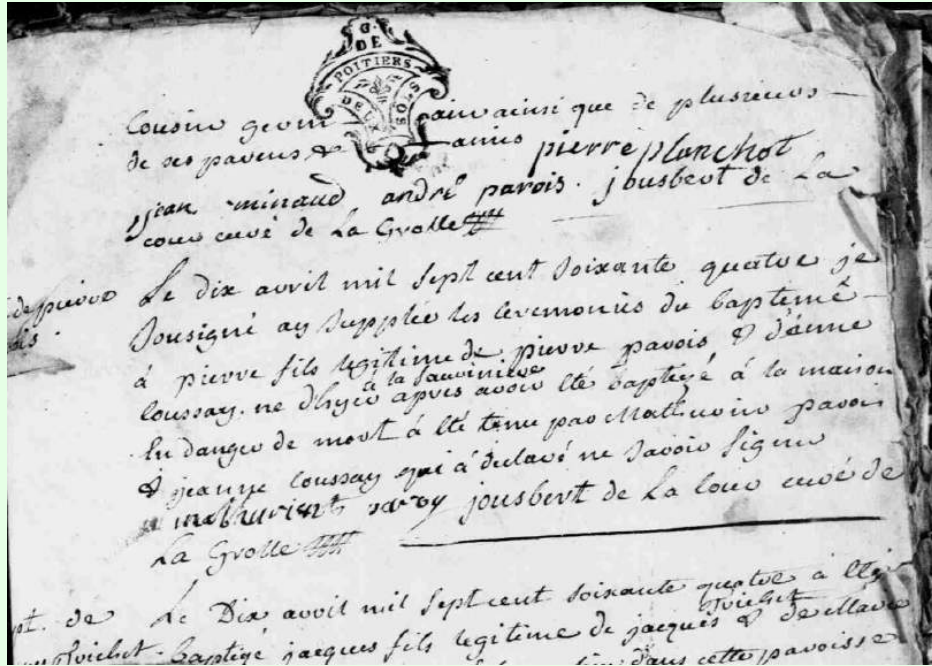 G. DE
POITIERS
DEUX S. OS
Cousin germ ain ainsi que de plusieurs
de ses parens & amis pierre planchot
jean minaud andré parois. jousbert de La
cour curé de La Grolle
de pierre Le dix avril mil sept cent soixante quatre je
sousigné ay supplée les ceremonies du baptemê
á pierre fils legitime de pierre parois & d'énne
à la sauvinière
loussay. ne d'hyer apres avoir été baptizé á la maison
En danger de mort á été tenu par Mathurin parois
& jeanne loussay qui á declaré ne savoir signer
mathurient paroy jousbert de La cour curé de
La Grolle
pt. de Le Dix avril mil sept cent soixante quatre á été
Trichet
Trichet. baptizé jacques fils legitime de jacques & de Marie
dans cette paroisse